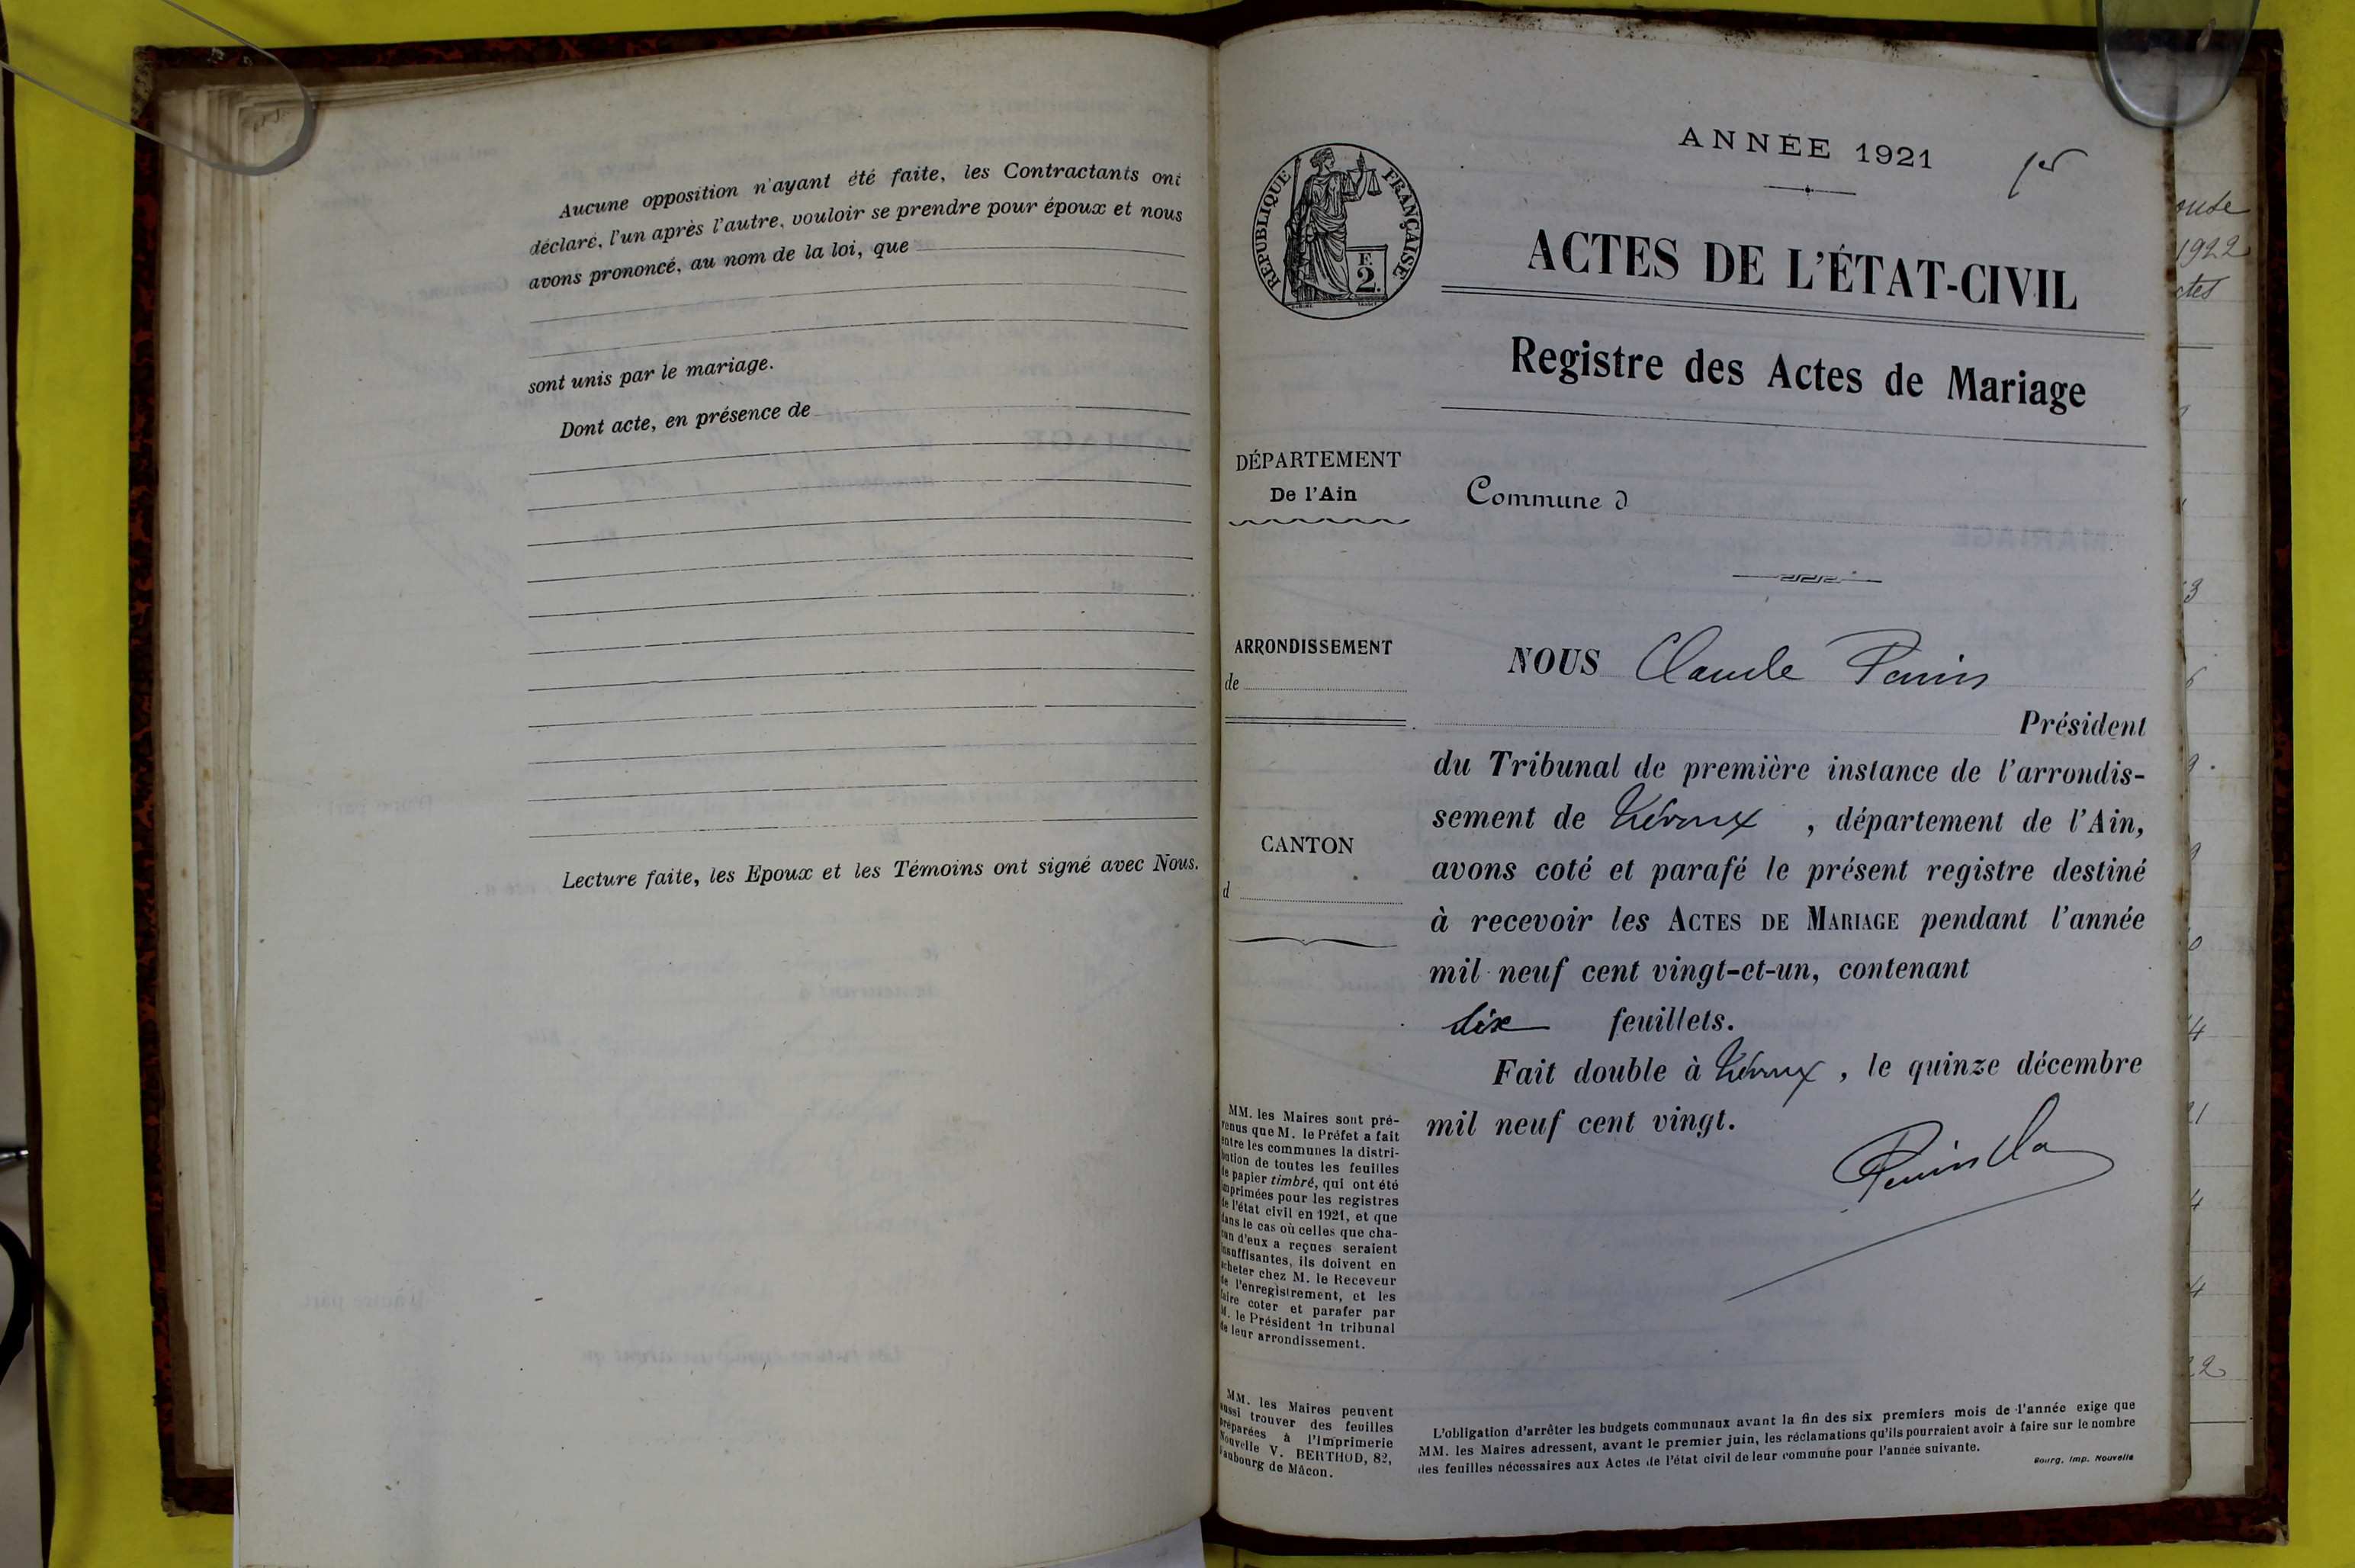 Aucune opposition n'ayant été faite, les Contractants ont
déclaré, l'un après l'autre, vouloir se prendre pour époux et nous
avons prononcé, au nom de la loi, que
sont unis par le mariage.
Dont acte, en présence de
Lecture faite, les Epoux et les Témoins ont signé avec Nous.
ANNÉE 1921
RÉPUBLIQUE FRANÇAISE
F.
2.
ACTES DE L'ÉTAT-CIVIL
Registre des Actes de Mariage
DÉPARTEMENT
De l'Ain
Commune d
ARRONDISSEMENT
de
CANTON
d
NOUS Claude
Président
du Tribunal de première instance de l'arrondis-
sement de Trévoux , département de l'Ain,
avons coté et parafé le présent registre destiné
à recevoir les ACTES DE MARIAGE pendant l'année
mil neuf cent vingt-et-un, contenant
dix feuillets.
Fait double à Trévoux , le quinze décembre
mil neuf cent vingt.
MM. les Maires sont pré-
venus que M. le Préfet a fait
entre les communes la distri-
bution de toutes les feuilles
de papier timbré, qui ont été
imprimées pour les registres
de l'état civil en 1921, et que
dans le cas où celles que cha-
cun d'eux a reçues seraient
insuffisantes, ils doivent en
acheter chez M. le Receveur
de l'enregistrement, et les
faire coter et parafer par
M. le Président du tribunal
de leur arrondissement.
MM. les Maires peuvent
aussi trouver des feuilles
préparées à l'Imprimerie
Nouvelle V. BERTHOD, 82,
faubourg de Mâcon.
L'obligation d'arrêter les budgets communaux avant la fin des six premiers mois de l'année exige que
MM. les Maires adressent, avant le premier juin, les réclamations qu'ils pourraient avoir à faire sur le nombre
des feuilles nécessaires aux Actes de l'état civil de leur commune pour l'année suivante.
Bourg. Imp. Nouvelle
1922